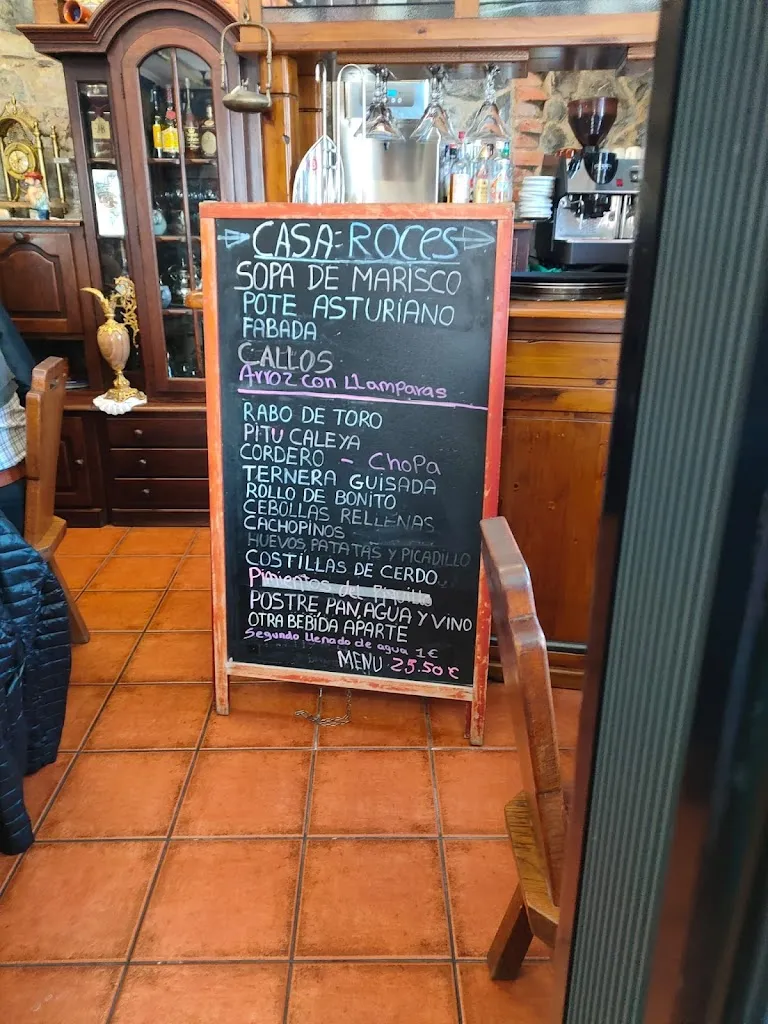 CASA-ROCES
SOPA DE MARISCO
POTE ASTURIANO
FABADA
CALLOS
Arroz con Llamparas
RABO DE TORO
PITU CALEYA
CORDERO - ChoPa
TERNERA GUISADA
ROLLO DE BONITO
CEBOLLAS RELLENAS
CACHOPINOS
HUEVOS, PATATAS Y PICADILLO
COSTILLAS DE CERDO
Pimientos del Piquillo
POSTRE, PAN, AGUA Y VINO
OTRA BEBIDA APARTE
Segundo llenado de agua 1€
MENU 25.50€